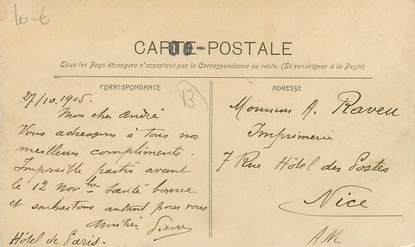 10-6
CARTE-POSTALE
Tous les Pays étrangers n'acceptent pas la Correspondance au recto. (Se renseigner à la Poste)
CORRESPONDANCE
ADRESSE
27/10.1905.
13
Mon cher André
Vous adressons à tous nos
meilleurs compliments.
Impossible partir avant
le 12 Nov bre Santé bonne
et souhaitons autant pour vous
Pierre
Hôtel de Paris.
Monsieur A. Raveu
Imprimerie
7 Rue Hôtel des Postes
Nice
A.M.